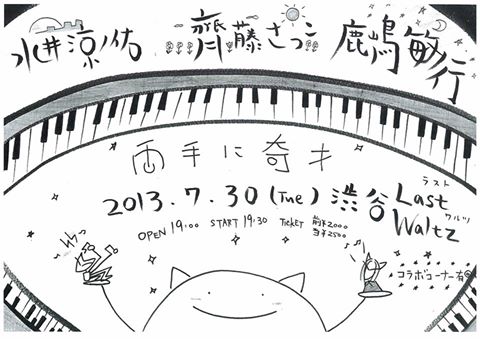 水井涼ノ佑 齊藤さっこ 鹿嶋敏行
両手に奇才
2013.7.30(Tue) 渋谷 Last Waltz
ラスト
ワルツ
OPEN 19:00 START 19:30 TICKET 前¥2000
当¥2500
コラボコーナー有